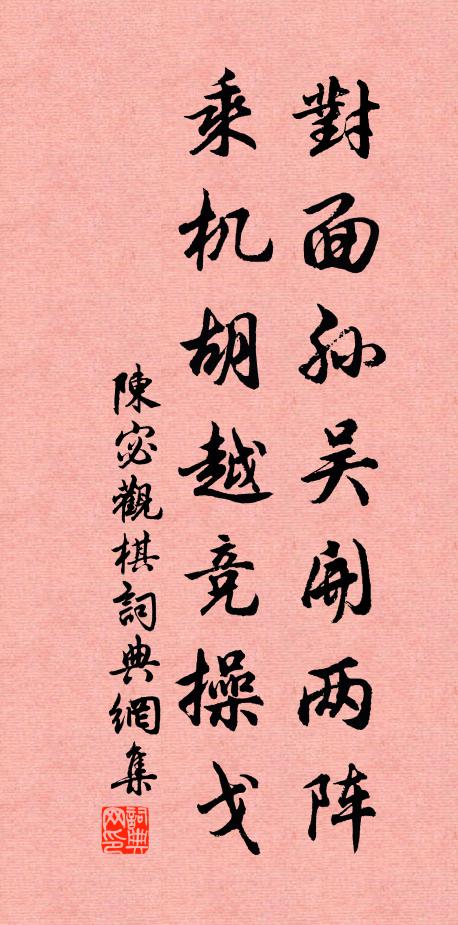 對面孙吴開两阵
乘机胡越竞操戈
陳宓觀棋詞典網集
詞典网印